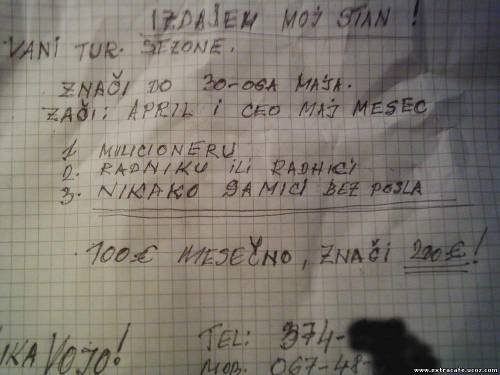 IZDAJEM MOJ STAN!
VANI TUR. SEZONE.
ZNAČI DO 30-OGA MAJA.
ZAČI: APRIL I CEO MAJ MESEC
1. MILICIONERU
2. RADNIKU ILI RADNICI
3. NIKAKO DAMICI BEZ POSLA
100€ MESEČNO, ZNAČI 200€!
IKA VOJO!
TEL: 374-
MOB. 067-48-
www.extracafe.ucoz.com